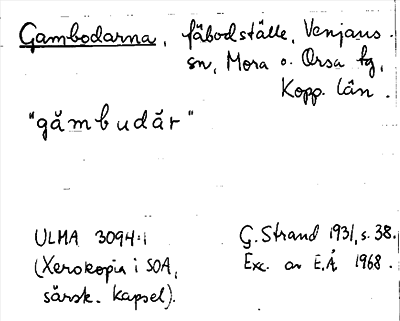 Gambodarna, fäbodställe, Venjans
sn, Mora o. Orsa tg,
Kopp. län.
"gåmbudår"
ULMA 3094:1
(Xerokopia i SOA,
särsk. kapsel).
G. Strand 1931, s. 38.
Exc. av E.Å 1968.